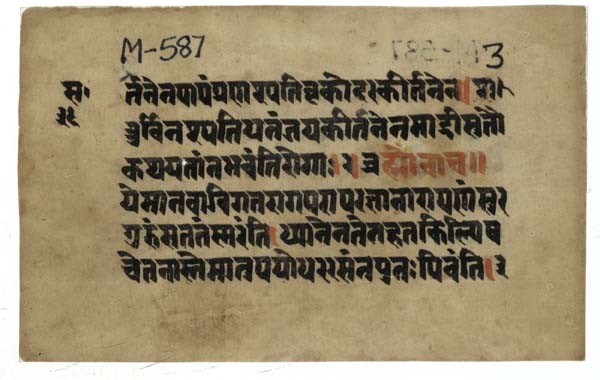 M-587
3
र्तनेनपापंप्रणश्यतिवृकोदरकीर्तनेन॥श।
त्रुर्विनश्यतिधनंजयकीर्तनेनमाद्रीसुतौ
कथयतांनभवंतिरोगाः॥२ब्रह्मोवाच॥
येमानवाविगतरागपरापरज्ञानारायणंसुर
गुरुंसततंस्मरंति।ध्यानेनतेनहतकिल्विष
चेतनास्तेमातपयोधररसंनपुनःपिवंति॥३